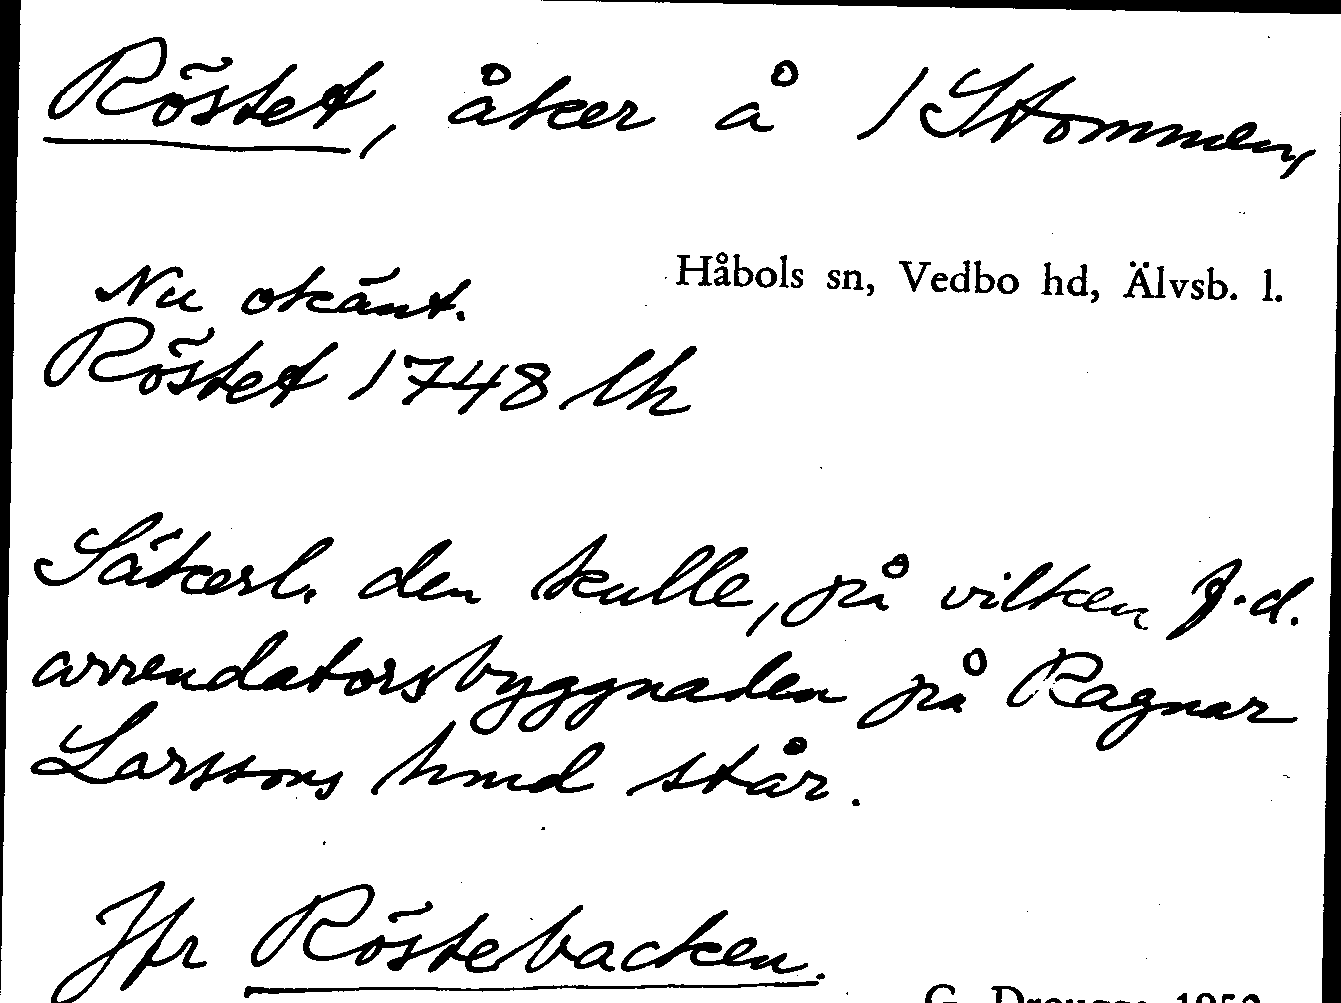 Röstet, åker å 1 Stommen,
Håbols sn, Vedbo hd, Älvsb. l.
Nu okänt.
Röstet 1748 lh
Säkerl. den kulle, på vilken f.d.
arrendatorsbyggnaden på Ragnar
Larssons hmd står.
Jfr Röstebacken.
G. Drougge 1952